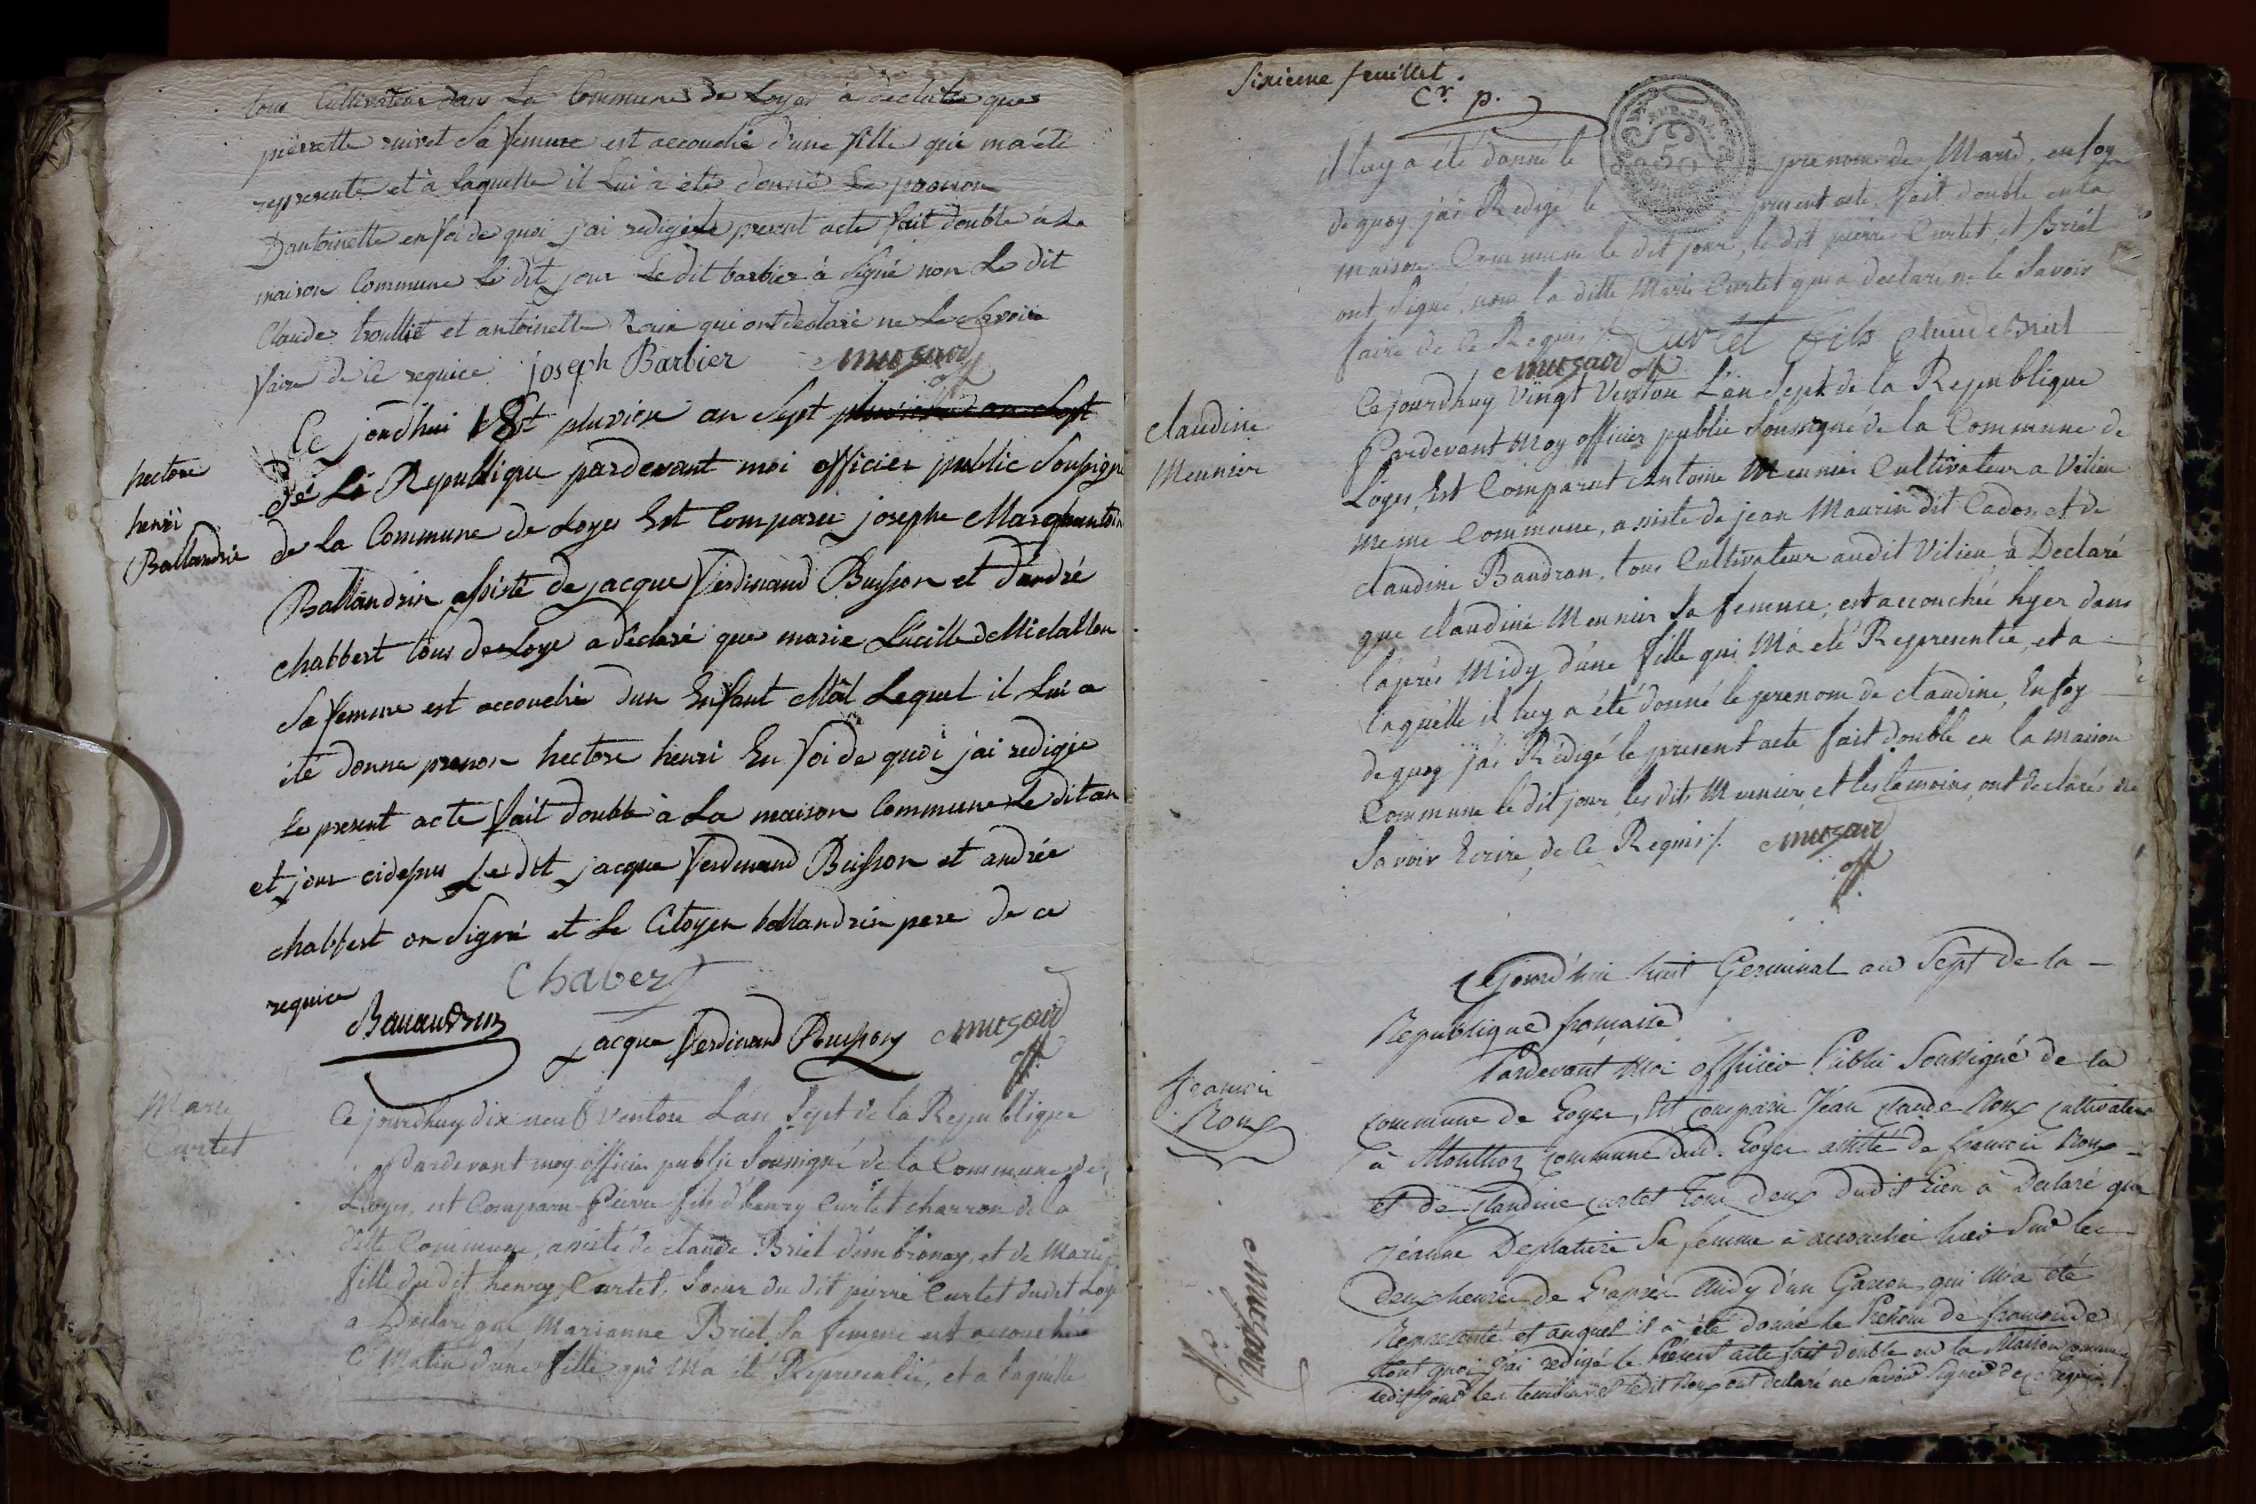 tous Cultivateur dans La Commune de Loyes a declaré que
pierrette ruivet sa femme est accouchée d'une fille qui ma été
represente et à laquelle il Lui à été donné Le prenom
Dantoinette en foi de quoi j'ai redigé le present acte fait double à La
maison Commune Le dit jour Le dit barbier à signé non Le dit
Claude troulliet et antoinette qui ont declaré ne Le Savoir
faire de ce requice joseph Barbier Muzard
off
hectore
henri
Ballandrin
Ce jourdhui pluviose an Sept
de La Republique pardevant moi officier public Soussigné
de la Commune de Loyes Est Comparu josephe Marc
Ballandrin assisté de jacque ferdinand Buisson et d'andré
chabbert tous de Loye a declaré que marie Lucille
Sa femme est accouché dun Enfant Mâl Lequel il Lui a
été donne prenom hectore henri En foi de quoi j'ai redigje
Le present acte fait double à La maison Commune Le dit an
et jour cidessus Le dit jacque ferdinand Buisson et andrée
chabbert on Signé et Le Citoyen ballandrin pere de ce
requice Chabert
Ballandrin jacque ferdinand Buisson Muzard
off
Marie
Curtet
Ce jourdhuy dix neuf ventose L'an Sept de la Republique
Pardevant moy officier public Soussigné de la Commune de
Loyes, est Comparu Pierre fils d'henry Curtet charron de la
ditte Commune, assisté de claude Briel d'embronay, et de Marie
fille du dit henry Curtet, Soeur du dit pierre Curtet dudit Loye
a Declaré que Marianne Briel Sa femme est accouchée
Ce Matin d'une fille qui Ma été Representée, et a laquelle
Sixieme feuillet.
Cr. p.
il luy a été donné le prenom de Marie, en foy
de quoy j'ai Redigé le present acte fait double en la
maison Commune le dit jour, le dit pierre Curtet, et Briel
ont Signé, non la ditte Marie Curtet qui a declaré ne le Savoir
faire de Ce Requis /. Curtet fils claude Briel
Muzard off
claudine
Meunier
Ce jourdhuy Vingt Ventose L'an Sept de la Republique
Pardevant Moy officier public Soussigné de la Commune de
Loyes, Est Comparut Antoine Meunier Cultivateur a Vilieu
meme Commune, assisté de jean Maurin dit Cadon et de
claudine Baudran, tous Cultivateur audit Vilieu, a Declaré
que claudine Meunier Sa femme, est accouchée hyer dans
l'après Midy d'une fille qui Ma été Representée, et a
laquelle il luy a été donné le prenom de claudine, En foy
de quoy j'ai Rédigé le present acte fait double en la maison
Commune le dit jour, les dits Meunier, et les temoins, ont declarés ne
Savoir Ecrire, de Ce Requis /. Muzard
off
Cejourd'hui huit Germinal an Sept de la
Republique francaise
Pardevant Moi officier Public Soussigné de la
francois
Roux
commune de Loyes, Est comparu Jean claude Roux cultivateur
à Monthoz commune dud. Loyes assisté de francois Roux
et de Claudine curtet tous deux dudit Lieu à Declaré que
jéanne Deplatiere Sa femme à accouchée hier Sur les
deux heures de L'après Midy d'un Garcon qui m'a été
Representé et auquel il à été donné le Prénom de francois de
tout quoi j'ai redigé le Present acte fait double en la Maison commune
ledit jour les temoins et ledit Roux ont declaré ne Savoir Signer de ce requis.
Muzard
off